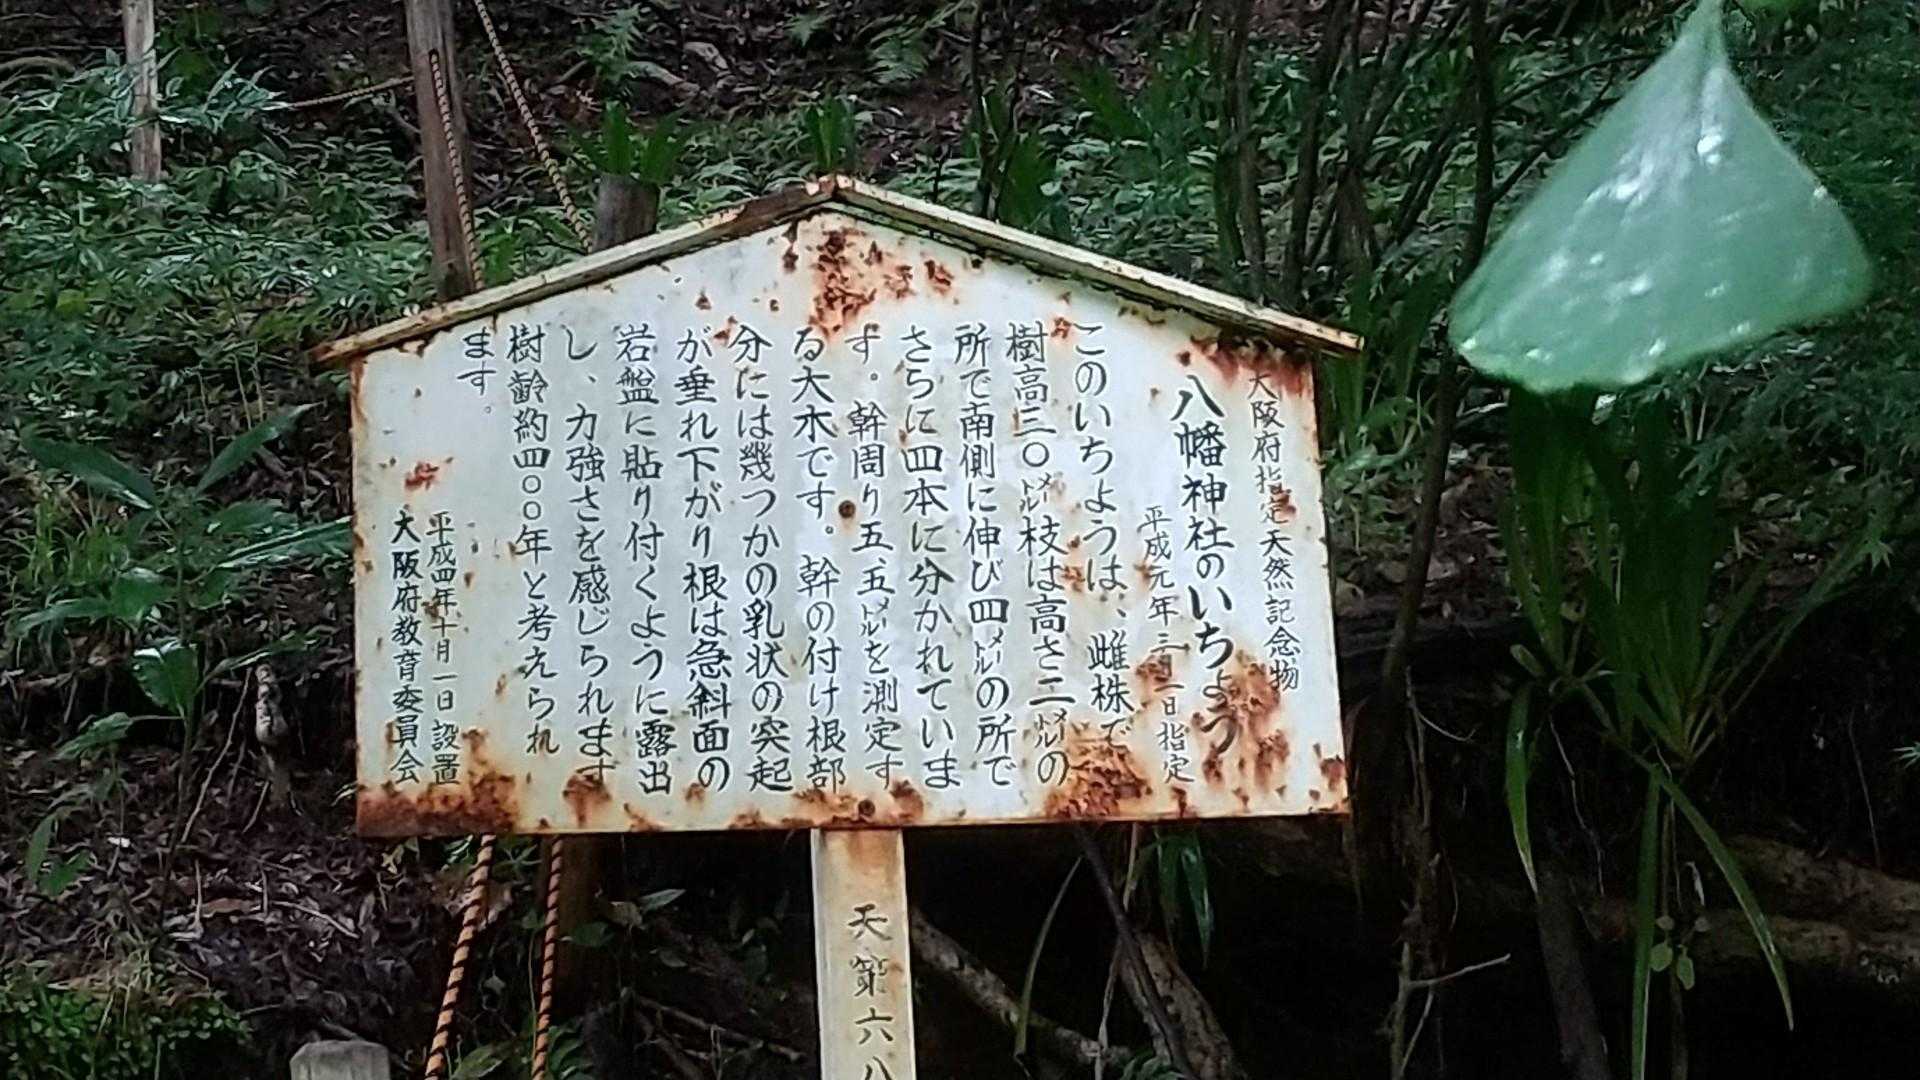 大阪府指定天然記念物
八幡神社のいちょう
平成元年三月一日指定
このいちようは、雌株で
樹高三〇メートル枝は高さ二メートルの
所で南側に伸び四メートルの所で
さらに四本に分かれていま
す。幹周り五、五メートルを測定す
る大木です。幹の付け根部
分には幾つかの乳状の突起
が垂れ下がり根は急斜面の
岩盤に貼り付くように露出
し、力強さを感じられます
樹齢約四〇〇年と考えられ
ます。
平成四年十月一日設置
大阪府教育委員会
天第六八